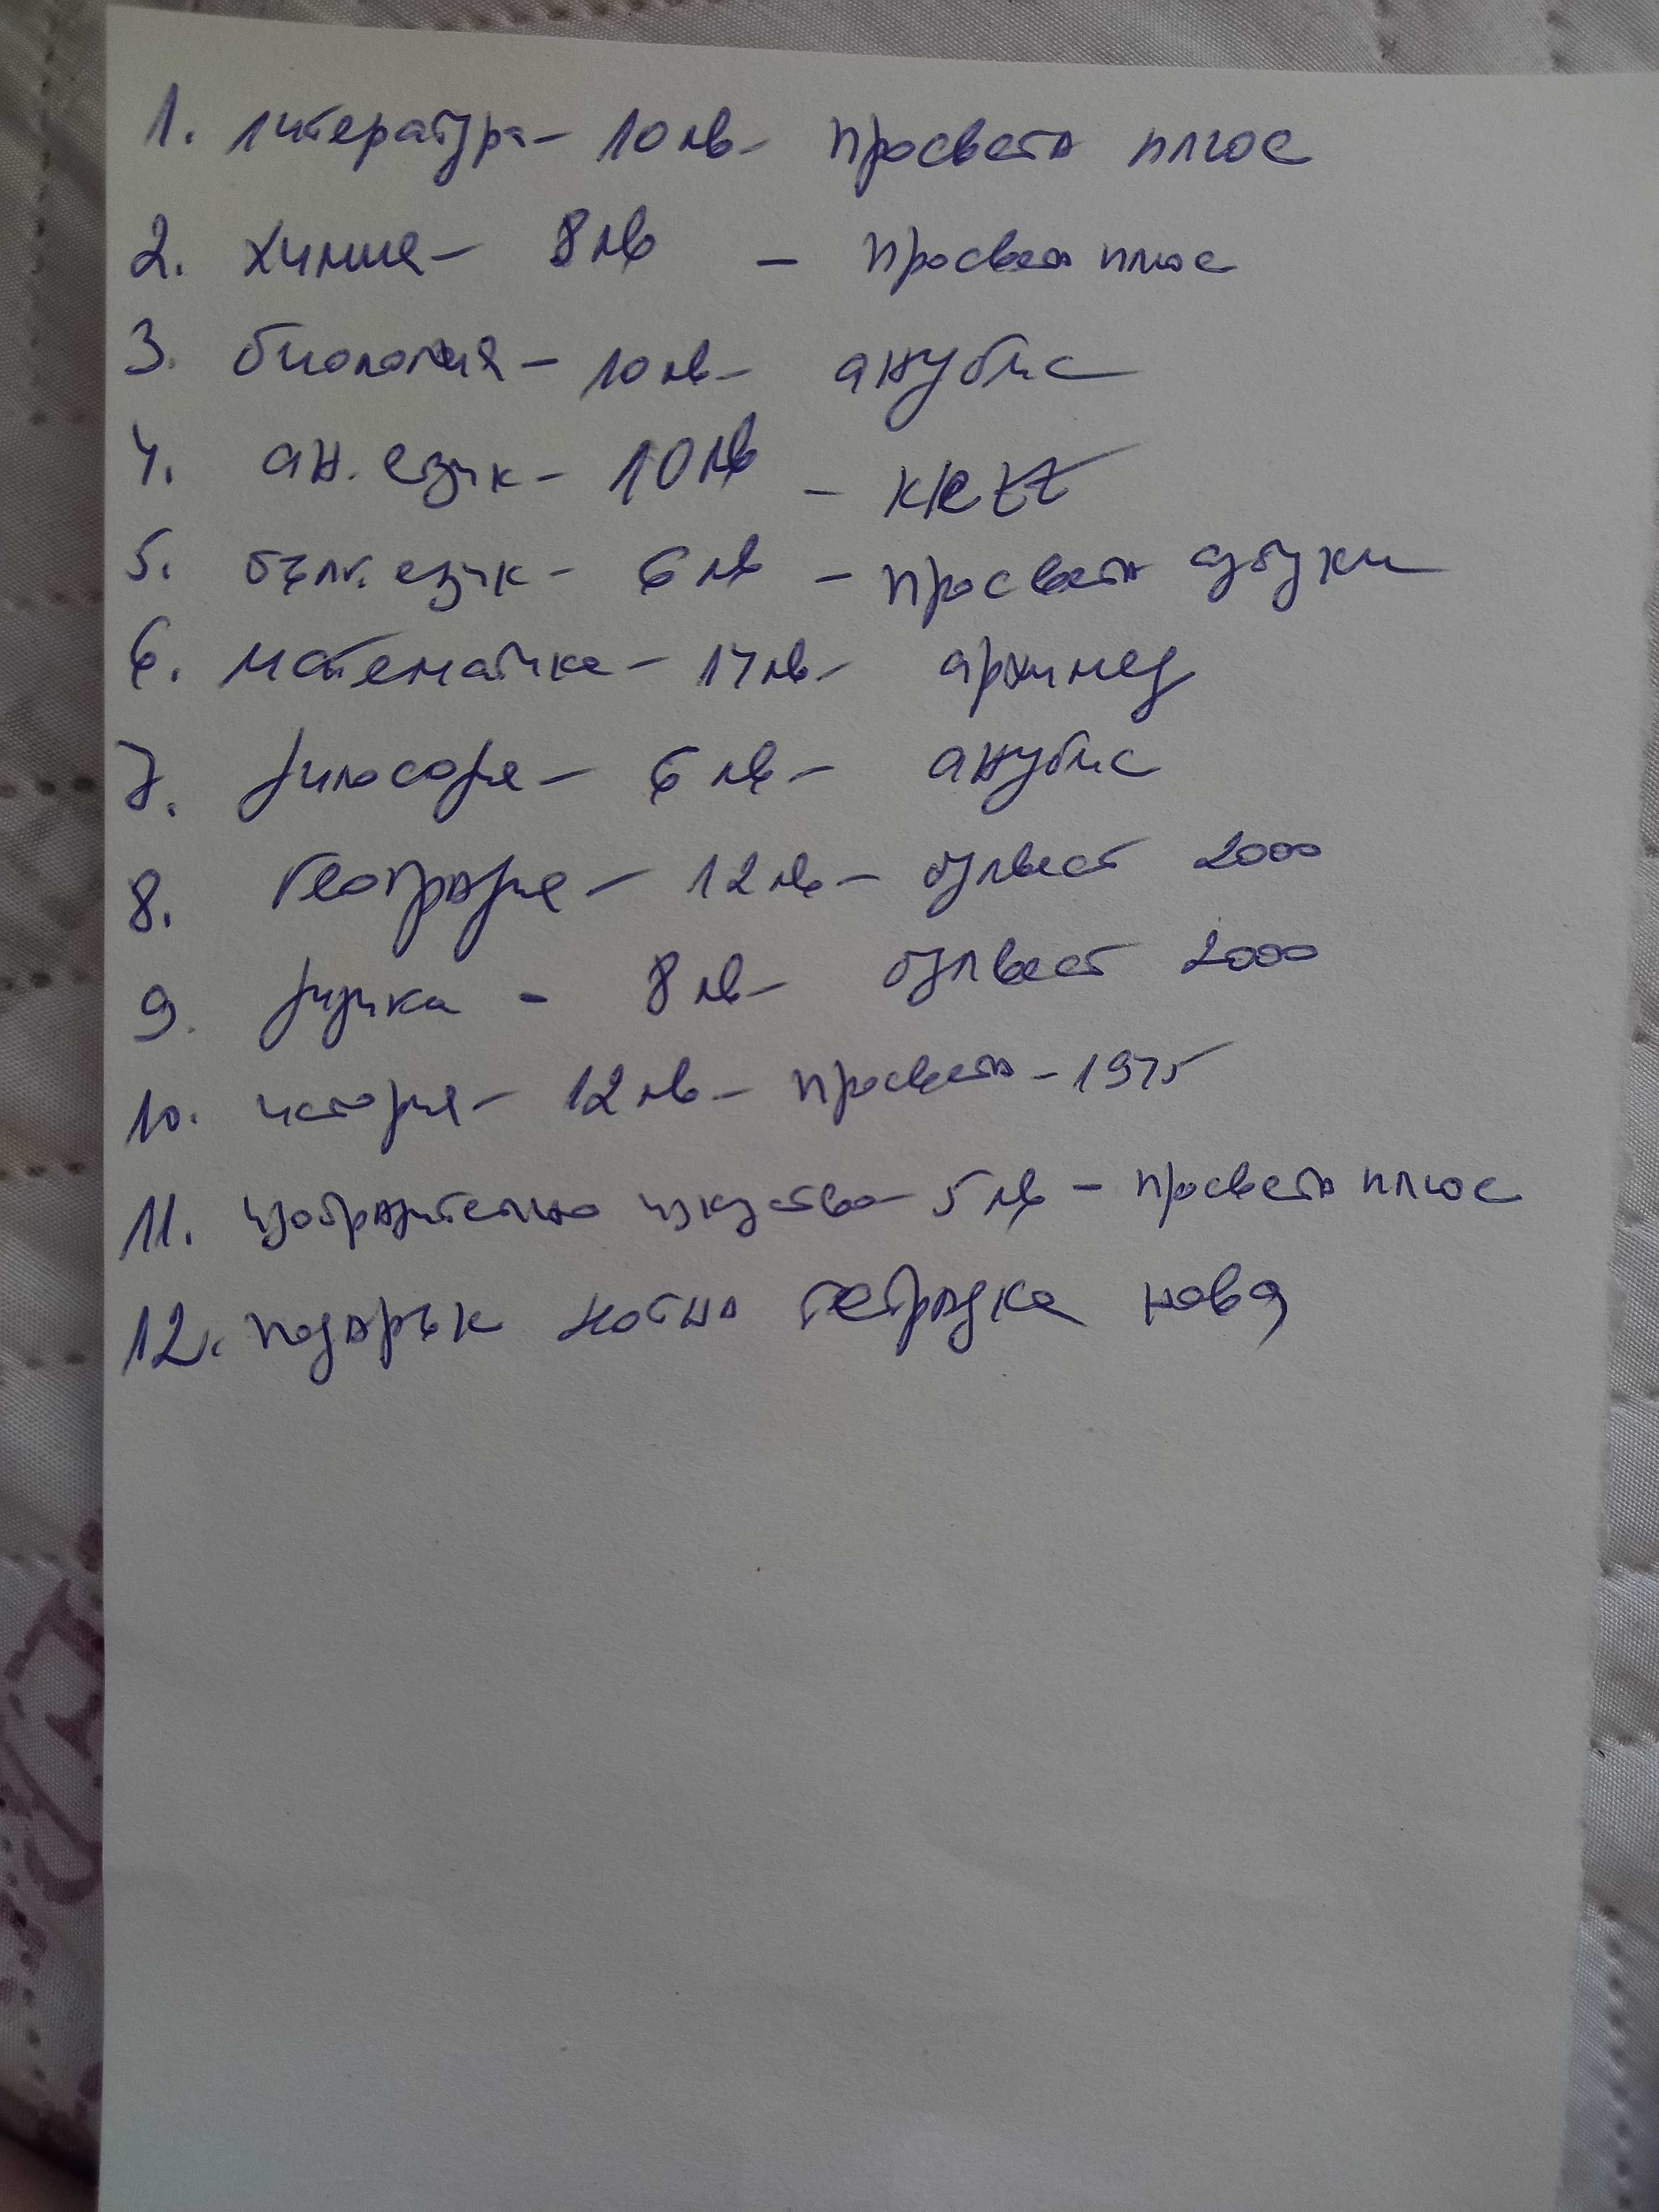 1. литература - 10 лв - просвета плюс
2. химия - 8 лв - просвета плюс
3. биология - 10 лв - анубис
4. ан. език - 10 лв -
5. бълг. език - 6 лв - просвета азбуки
6. математика - 17 лв - архимед
7. философия - 6 лв - анубис
8. География - 12 лв - булвест 2000
9. физика - 8 лв - булвест 2000
10. история - 12 лв - просвета - 1945
11. изобразително изкуство - 5 лв - просвета плюс
12. подарък нотна тетрадка нова